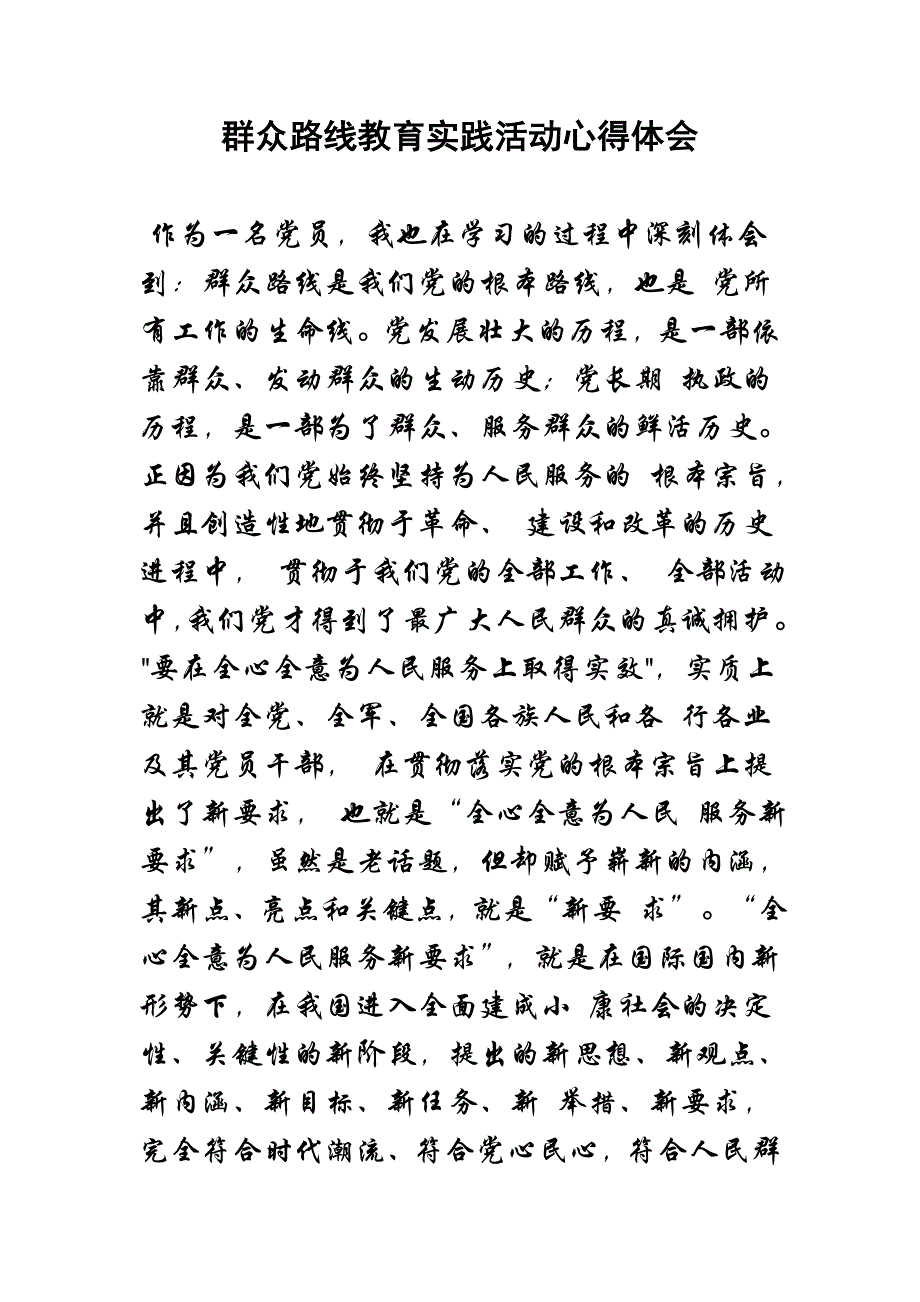 群众路线教育实践活动心得体会
作为一名党员，我也在学习的过程中深刻体会
到：群众路线是我们党的根本路线，也是 党所
有工作的生命线。党发展壮大的历程，是一部依
靠群众、发动群众的生动历史；党长期 执政的
历程，是一部为了群众、服务群众的鲜活历史。
正因为我们党始终坚持为人民服务的 根本宗旨，
并且创造性地贯彻于革命、 建设和改革的历史
进程中， 贯彻于我们党的全部工作、 全部活动
中,我们党才得到了最广大人民群众的真诚拥护。
"要在全心全意为人民服务上取得实效"，实质上
就是对全党、全军、全国各族人民和各 行各业
及其党员干部， 在贯彻落实党的根本宗旨上提
出了新要求， 也就是“全心全意为人民 服务新
要求”，虽然是老话题，但却赋予崭新的内涵，
其新点、亮点和关键点,就是“新要 求”。“全
心全意为人民服务新要求”，就是在国际国内新
形势下，在我国进入全面建成小 康社会的决定
性、关键性的新阶段，提出的新思想、新观点、
新内涵、新目标、新任务、新 举措、新要求，
完全符合时代潮流、符合党心民心，符合人民群